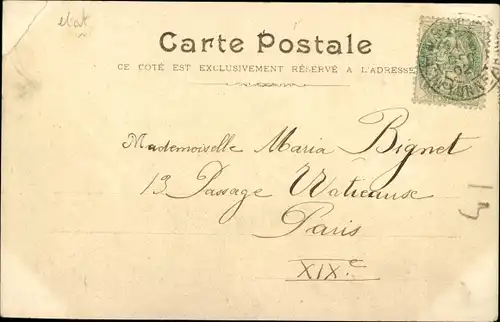 elat
Carte Postale
CE COTÉ EST EXCLUSIVEMENT RÉSERVÉ A L'ADRESSE
Mademoiselle Maria Bignet
13 Passage
Paris
XIXe